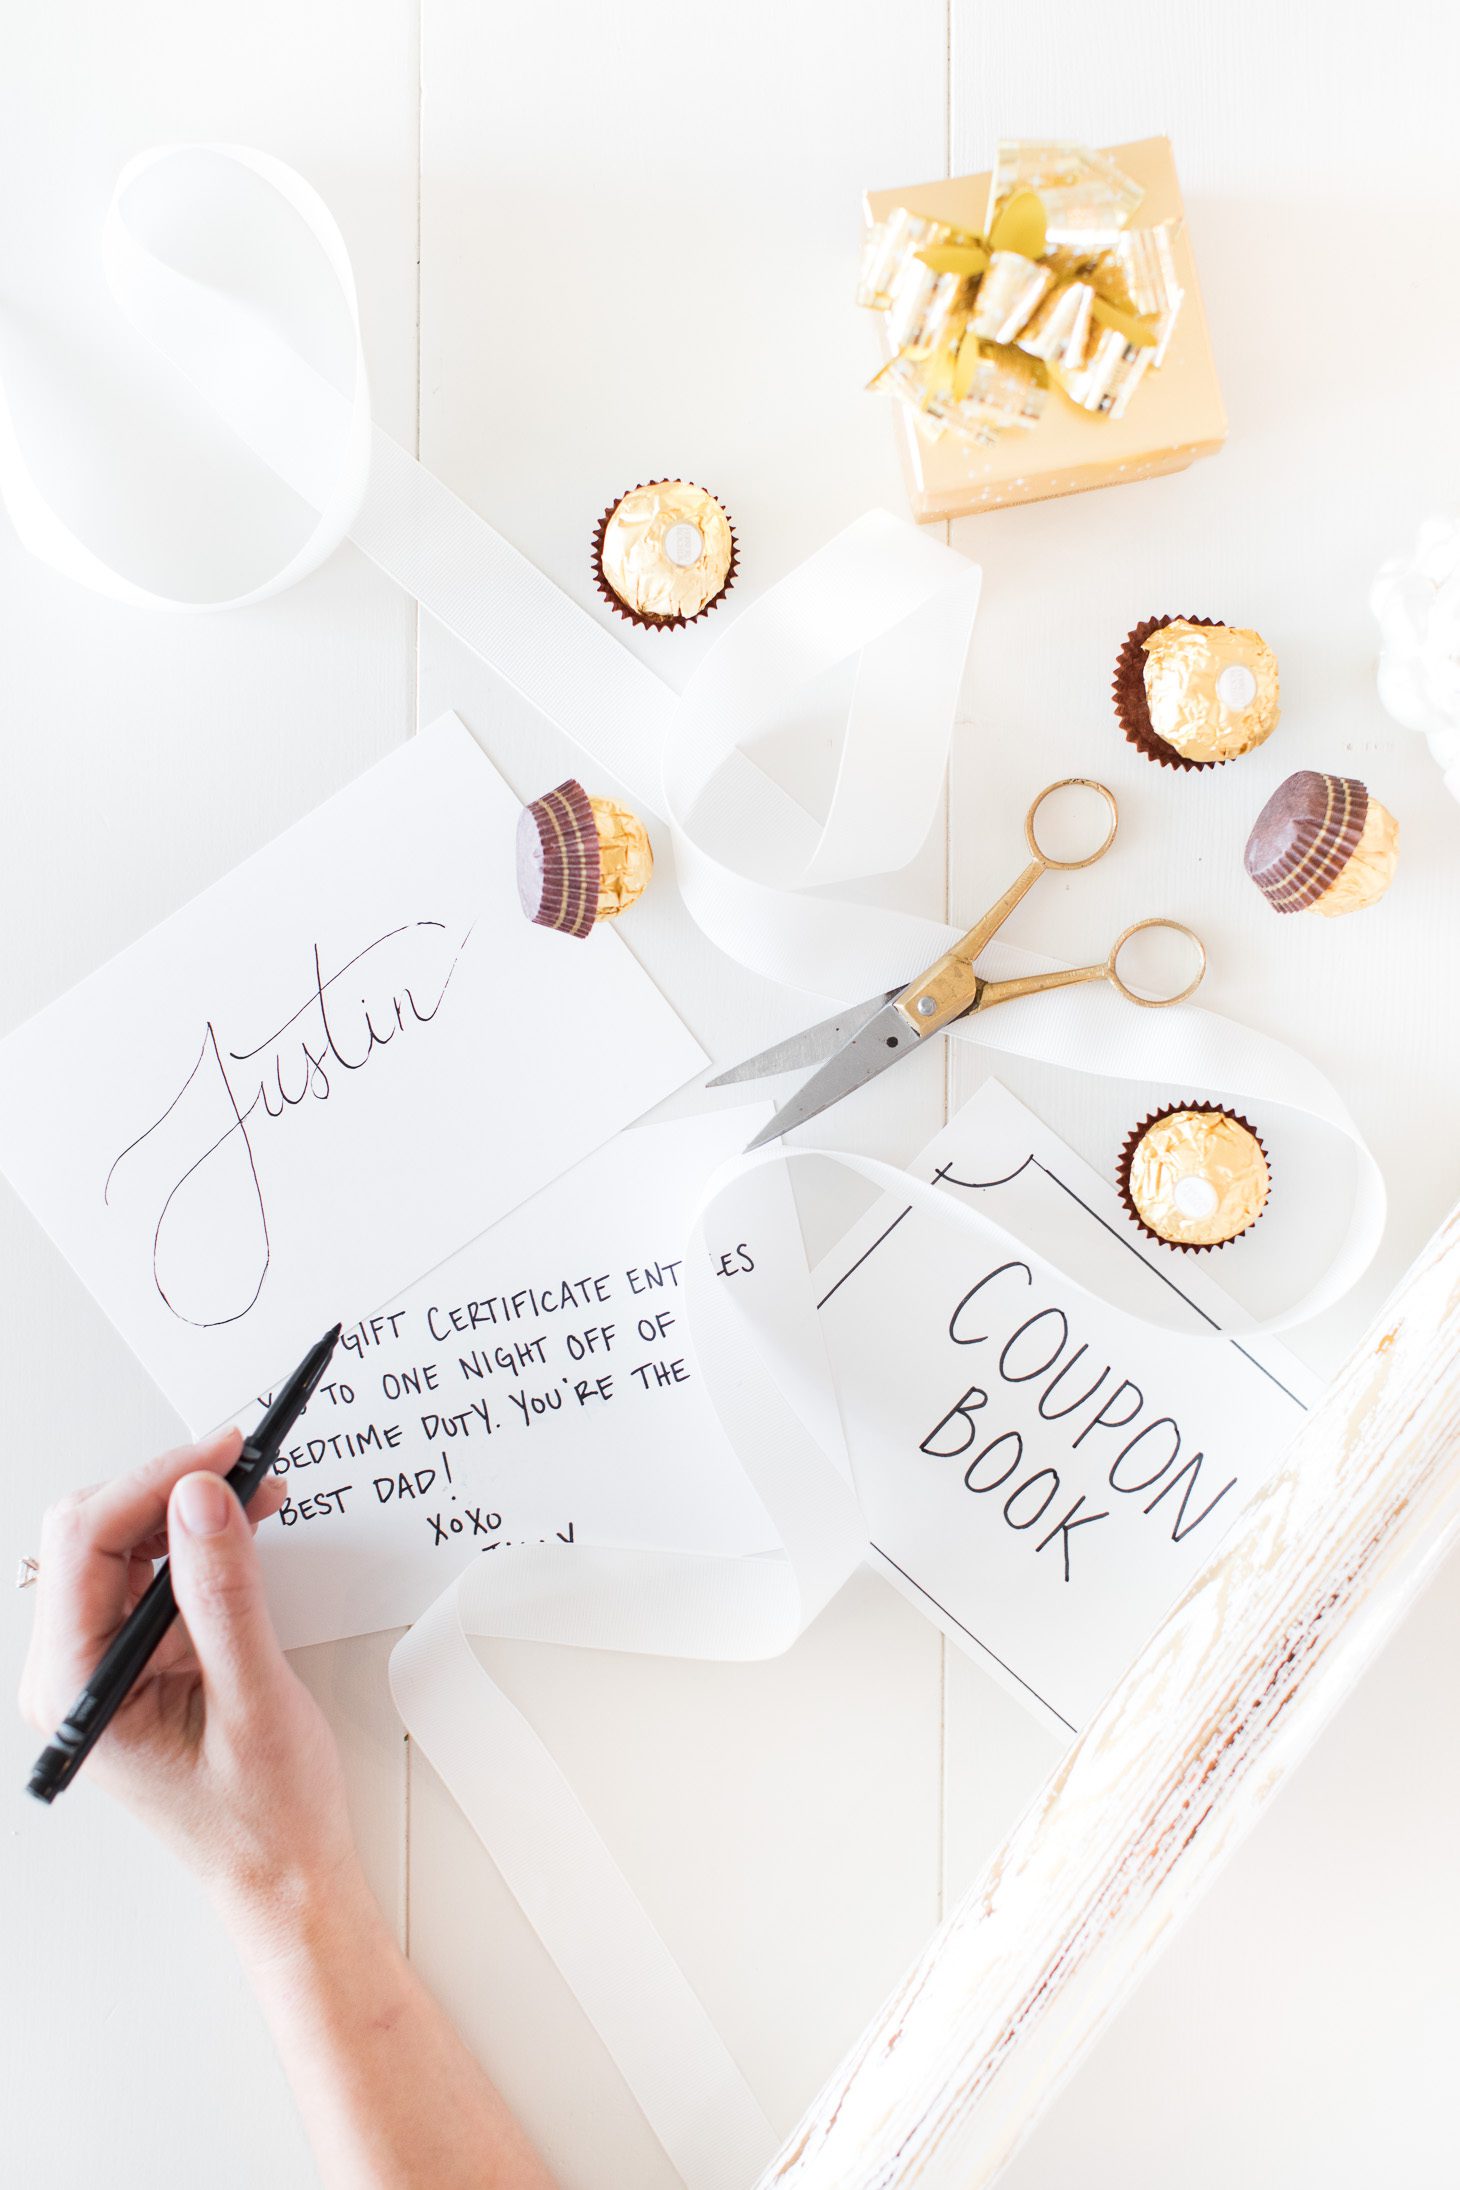 Justin
GIFT CERTIFICATE
TO ONE NIGHT OFF OF
BEDTIME DUTY. YOU'RE THE
BEST DAD!
XOXO
COUPON
BOOK